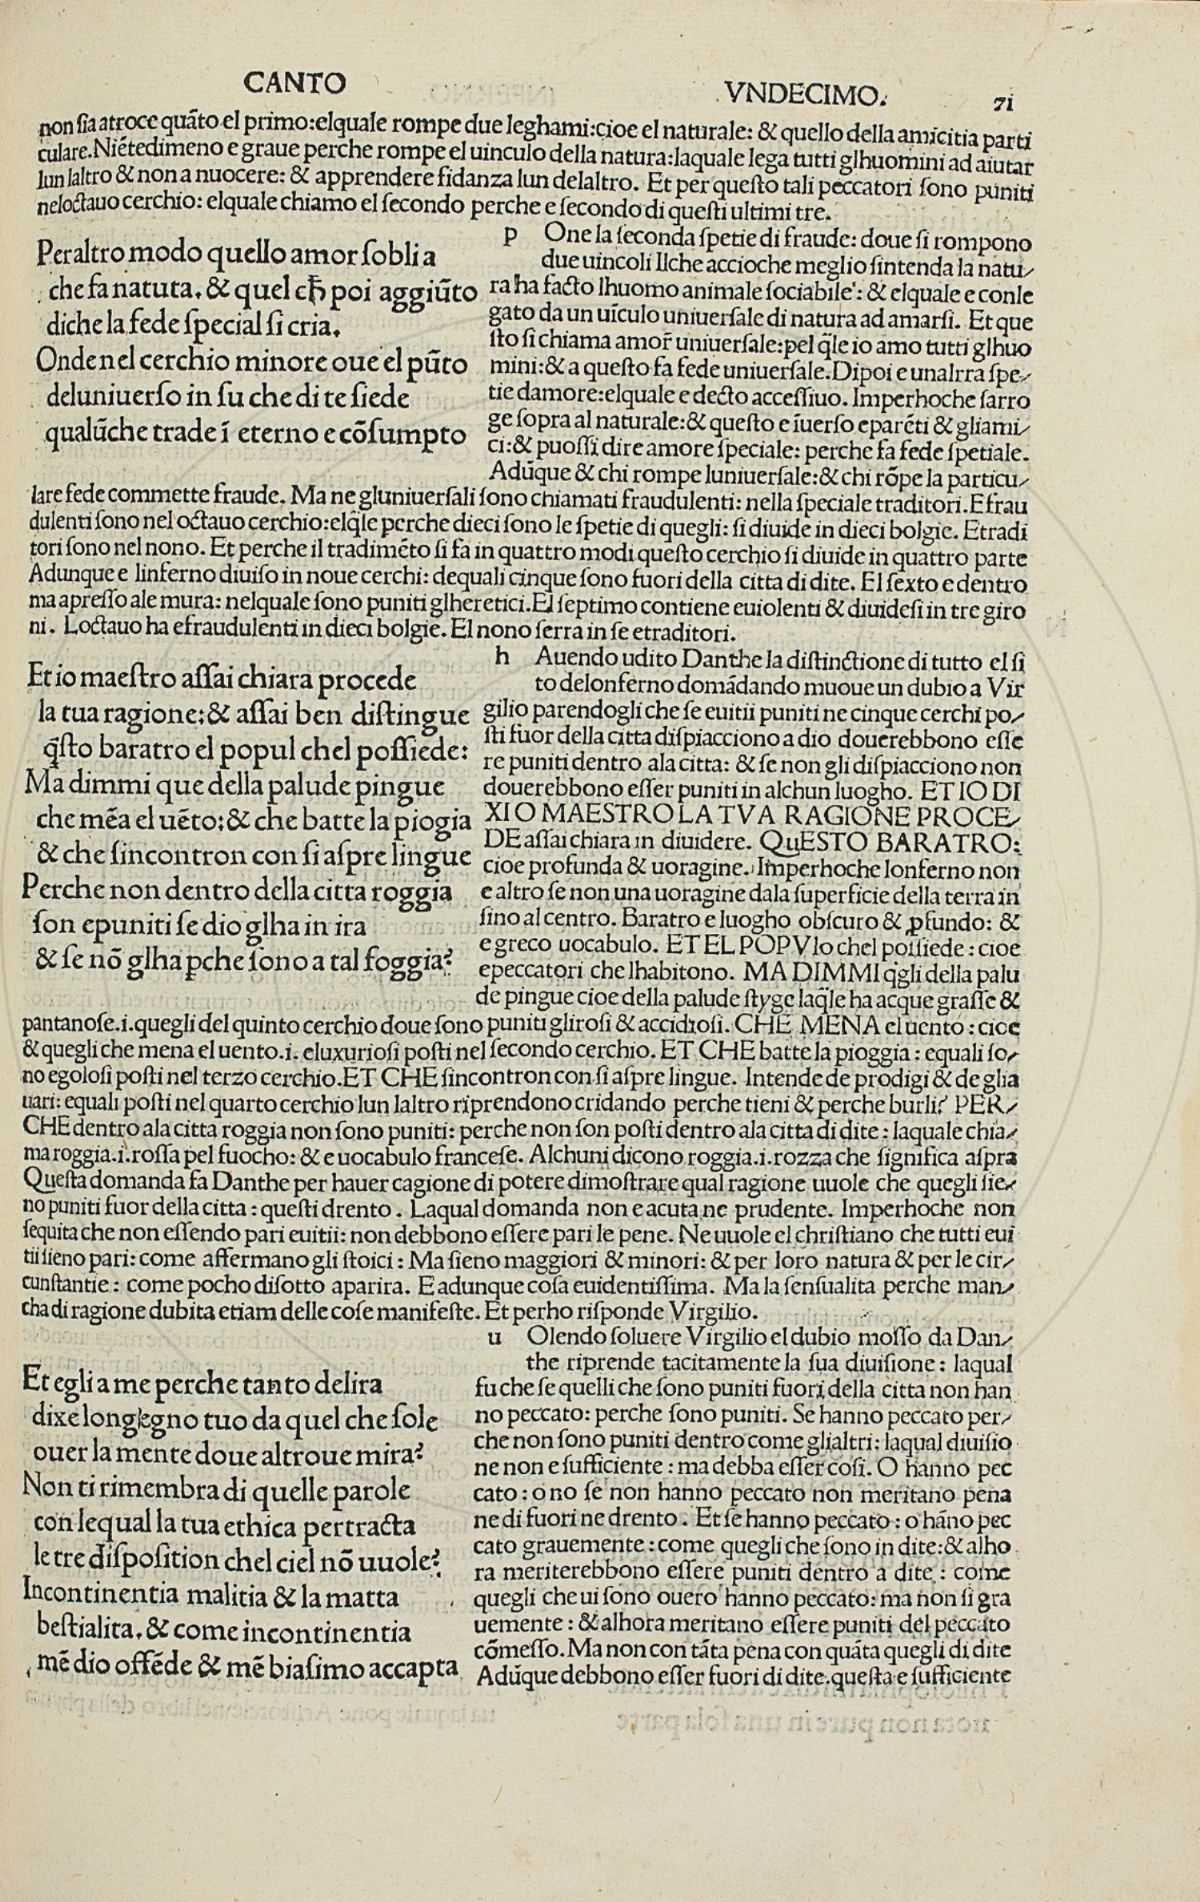 CANTO VNDECIMO. 71
non ſia atroce quãto el primo:elquale rompe due leghami:cioe el naturale: & quello della amicitia parti
culare.Niẽtedimeno e graue perche rompe el uinculo della natura:laquale lega tutti glhuomini ad aiutar
lun laltro & non a nuocere: & apprendere fidanza lun delaltro. Et per queſto tali peccatori ſono puniti
neloctauo cerchio: elquale chiamo el ſecondo perche e ſecondo di queſti ultimi tre.
Peraltro modo quello amor ſoblia
che fa natuta. & quel cħ poi aggiũto
diche la fede ſpecial ſi cria.
Onde nel cerchio minore oue el pũto
deluniuerſo in ſu che di te ſiede
qualũche trade ĩ eterno e cõſumpto
p One la ſeconda ſpetie di fraude: doue ſi rompono
due uincoli Ilche accioche meglio ſintenda la natu/
ra ha facto lhuomo animale ſociabile: & elquale e conle
gato da un uĩculo uniuerſale di natura ad amarſi. Et que
ſto ſi chiama amor̃ uniuerſale:pel q̃le io amo tutti glhuo
mini:& a queſto fa fede uniuerſale.Dipoi e unalrra ſpe/
tie damore:elquale e decto acceſſiuo. Imperhoche ſarro
ge ſopra al naturale:& queſto e ĩuerſo eparẽti & gliami/
ci:& puoſſi dire amore ſpeciale: perche fa fede ſpetiale.
Adũque & chi rompe luniuerſale:& chi rõpe la particu/
lare fede commette fraude. Ma ne gluniuerſali ſono chiamati fraudulenti: nella ſpeciale traditori.Efrau
dulenti ſono nel octauo cerchio:elq̃le perche dieci ſono le ſpetie di quegli: ſi diuide in dieci bolgie. Etradi
tori ſono nel nono. Et perche il tradimẽto ſi fa in quattro modi queſto cerchio ſi diuide in quattro parte
Adunque e linferno diuiſo in noue cerchi: dequali cinque ſono fuori della citta di dite. El ſexto e dentro
ma apreſſo ale mura: nelquale ſono puniti glheretici.El ſeptimo contiene euiolenti & diuideſi in tre giro
ni. Loctauo ha efraudulenti in dieci bolgie. El nono ſerra in ſe etraditori.
Et io maeſtro aſſai chiara procede
la tua ragione:& aſſai ben diſtingue
q̃ſto baratro el popul chel poſſiede:
Ma dimmi que della palude pingue
che mẽa el uẽto:& che batte la piogia
& che ſincontron con ſi aſpre lingue
Perche non dentro della citta roggia
ſon epuniti ſe dio glha in ira
& ſe nõ glha ꝑche ſono a tal foggia?
h Auendo udito Danthe la diſtinctione di tutto el ſi
to delonferno domãdando muoue un dubio a Vir
gilio parendogli che ſe euitii puniti ne cinque cerchi po/
ſti fuor della citta diſpiacciono a dio douerebbono eſſe
re puniti dentro ala citta: & ſe non gli diſpiacciono non
douerebbono eſſer puniti in alchun luogho. ET IO DI
XI O MAESTRO LA TVA RAGIONE PROCE/
DE aſſai chiara in diuidere. QuESTO BARATRO:
cioe profunda & uoragine. Imperhoche lonferno non
e altro ſe non una uoragine dala ſuperficie della terra in
ſino al centro. Baratro e luogho obſcuro & ꝓfundo: &
e greco uocabulo. ET EL POPV lo chel poſſiede : cioe
epeccatori che lhabitono. MA DIMMI q̃gli della palu
de pingue cioe della palude ſtyge laq̃le ha acque graſſe &
pantanoſe.i.quegli del quinto cerchio doue ſono puniti gliroſi & accidioſi. CHE MENA el uento : cioe
& quegli che mena el uento.i. eluxurioſi poſti nel ſecondo cerchio. ET CHE batte la pioggia : equali ſo/
no egoloſi poſti nel terzo cerchio.ET CHE ſincontron con ſi aſpre lingue. Intende de prodigi & de glia
uari: equali poſti nel quarto cerchio lun laltro riprendono cridando perche tieni & perche burli? PER/
CHE dentro ala citta roggia non ſono puniti: perche non ſon poſti dentro ala citta di dite : laquale chia/
ma roggia.i.roſſa pel fuocho: & e uocabulo franceſe. Alchuni dicono roggia.i.rozza che ſignifica aſpra
Queſta domanda fa Danthe per hauer cagione di potere dimoſtrare qual ragione uuole che quegli ſie/
no puniti fuor della citta : queſti drento . Laqual domanda non e acuta ne prudente. Imperhoche non
ſequita che non eſſendo pari euitii: non debbono eſſere pari le pene. Ne uuole el chriſtiano che tutti eui
tii ſieno pari: come affermano gli ſtoici : Ma ſieno maggiori & minori: & per loro natura & per le cir/
cunſtantie : come pocho diſotto aparira. E adunque coſa euidentiſſima. Ma la ſenſualita perche man/
cha di ragione dubita etiam delle coſe manifeſte. Et perho riſponde Virgilio.
Et egli a me perche tanto delira
dixe longegno tuo da quel che ſole
ouer la mente doue altroue mira?
Non ti rimembra di quelle parole
con lequal la tua ethica pertracta
le tre diſpoſition chel ciel nõ uuole?
Incontinentia malitia & la matta
beſtialita. & come incontinentia
mẽ dio offẽde & mẽ biaſimo accapta
u Olendo ſoluere Virgilio el dubio moſſo da Dan/
the riprende tacitamente la ſua diuiſione : laqual
fu che ſe quelli che ſono puniti fuori della citta non han
no peccato: perche ſono puniti. Se hanno peccato per/
che non ſono puniti dentro come glialtri: laqual diuiſio
ne non e ſufficiente : ma debba eſſer coſi. O hanno pec
cato : o no ſe non hanno peccato non meritano pena
ne di fuori ne drento . Et ſe hanno peccato : o hãno pec
cato grauemente : come quegli che ſono in dite:& alho
ra meriterebbono eſſere puniti dentro a dite : come
quegli che ui ſono ouero hanno peccato: ma non ſi gra
uemente : & alhora meritano eſſere puniti del peccato
cõmeſſo. Ma non con tãta pena con quãta quegli di dite
Adũque debbono eſſer fuori di dite.queſta e ſufficiente